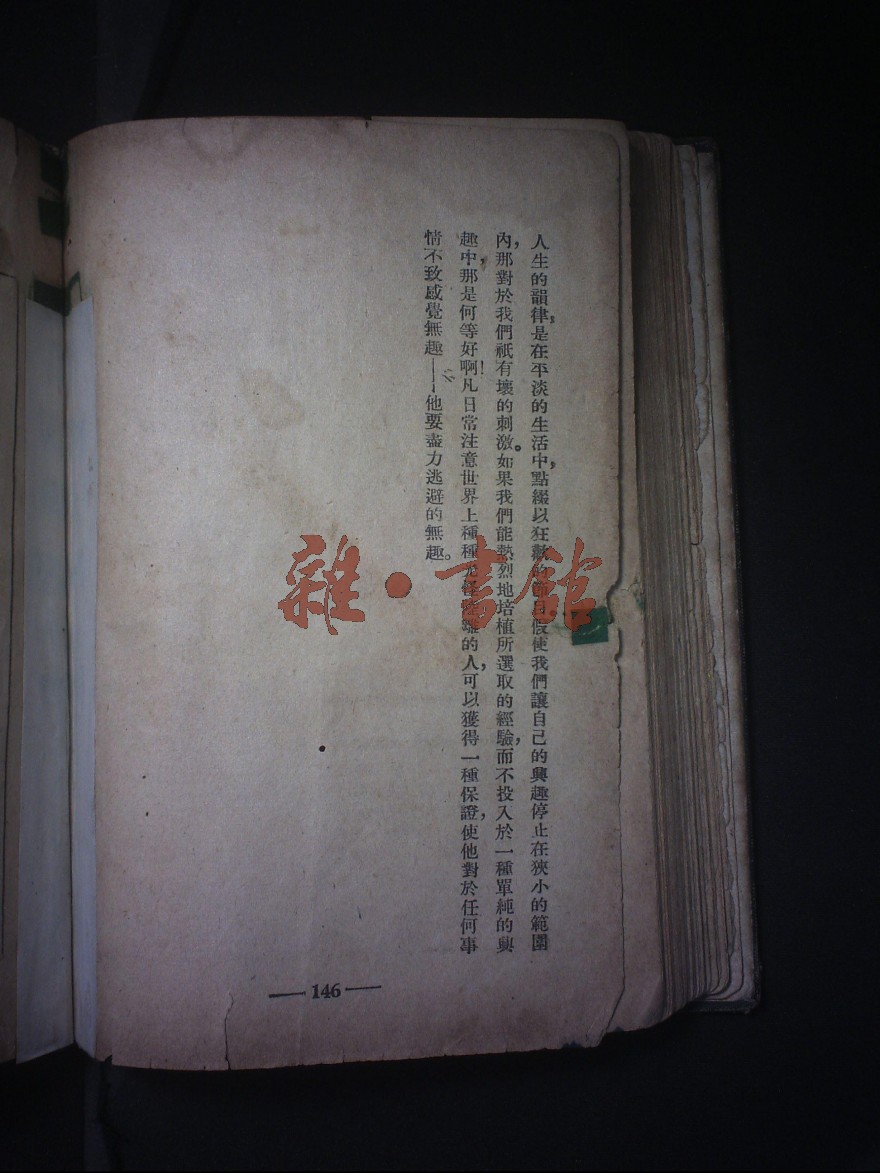 人生的韻律，是在平淡的生活中，點綴以狂歡的節日假使我們讓自己的興趣停止在狹小的範圍
內，那對於我們祇有壞的刺激。如果我們能熱烈地培植所選取的經驗，而不投入於一種單純的興
趣中，那是何等好啊！凡日常注意世界上種種光怪的人，可以獲得一種保證，使他對於任何事
情不致感覺無趣——他要盡力逃避的無趣。
雜·書館
—— 146 ——